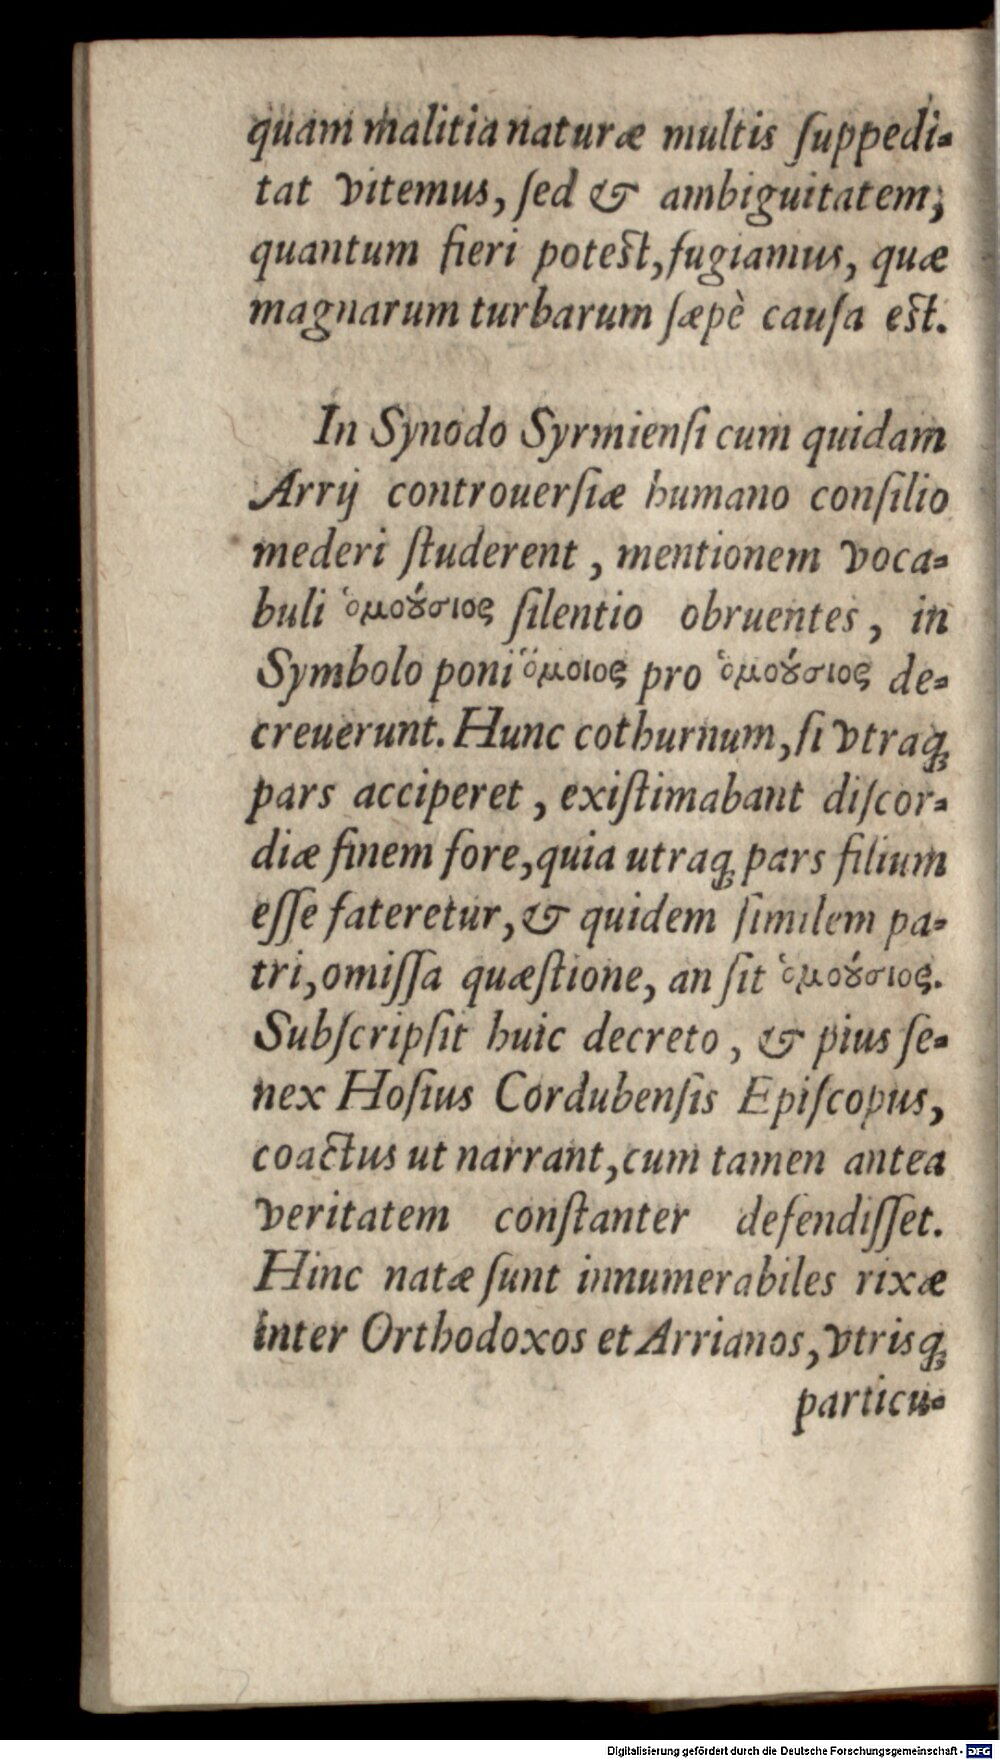 quam malitia naturæ multis ſuppedi-
tat vitemus, ſed & ambiguitatem,
quantum fieri poteſt, fugiamus, quæ
magnarum turbarum ſæpè cauſa eſt.
In Synodo Syrmienſi cum quidam
Arrij controuerſiæ humano conſilio
mederi ſtuderent, mentionem voca-
buli ὁμούσιος ſilentio obruentes, in
Symbolo poni ὅμοιος pro ὁμούσιος de-
creuerunt. Hunc cothurnum, ſi vtraq;
pars acciperet, exiſtimabant diſcor-
diæ finem fore, quia utraq; pars filium
eſſe fateretur, & quidem ſimilem pa-
tri, omiſſa quæſtione, an ſit ὁμούσιος.
Subſcripſit huic decreto, & pius ſe-
nex Hoſius Cordubenſis Epiſcopus,
coactus ut narrant, cum tamen antea
veritatem conſtanter defendiſſet.
Hinc natæ ſunt innumerabiles rixæ
inter Orthodoxos et Arrianos, vtrisq;
particu-
Digitalisierung gefördert durch die Deutsche Forschungsgemeinschaft - DFG